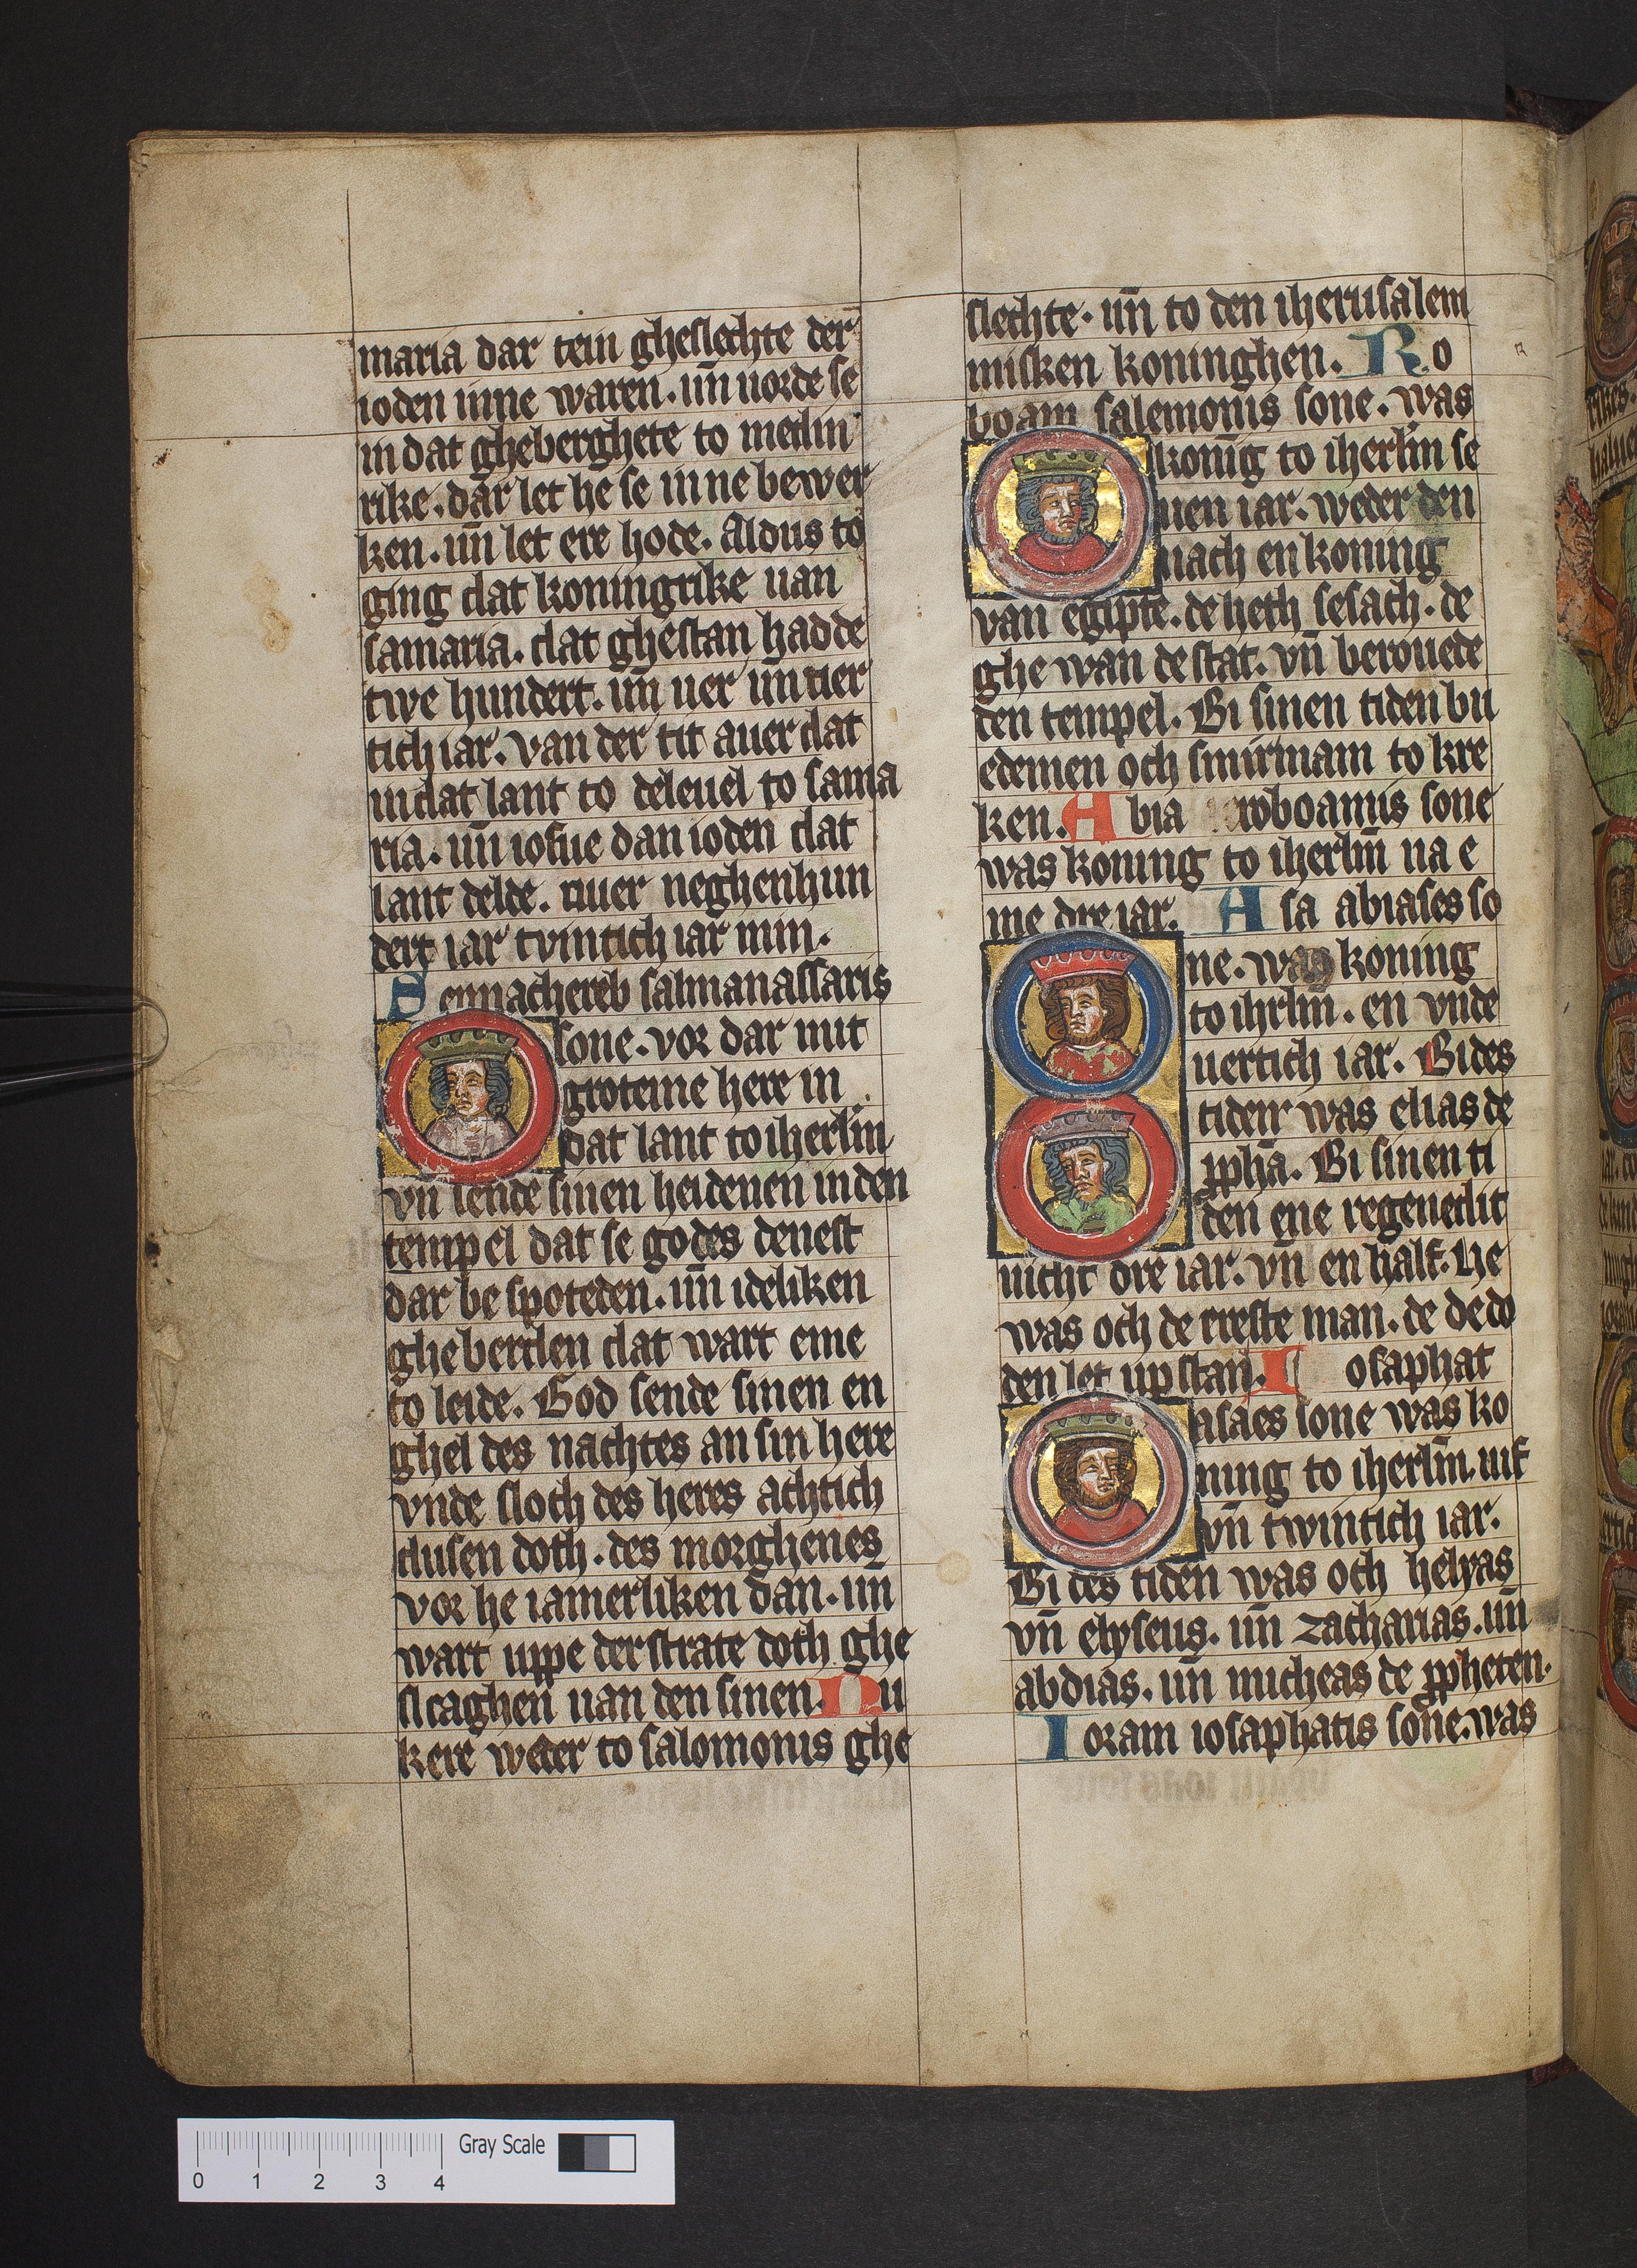 maria dar tein gheslechte der
ioden inne waren. uñ uorde se
in dat gheberghete to medin
rike. dar let he se in ne bewer
ken. uñ let ere hode. Aldus to
ging dat koningrike uan
samaria. dat ghestan hadde
twe hundert. uñ uer uñ uer
tich iar. van der tit auer dat
in dat lant to deleuel to sama
ria. uñ iosue dan ioden dat
lant delde. ouer neghenhun
dert iar tvintich iar min.
Sennachereb salmanassaris
sone. vor dar mit
groteme here in
dat lant to iherlm̄
vñ sende sinen heidenen in den
tempel dat se godes denest
dar be spoteden. uñ ideliken
gheberden dat wart eme
to leide. God sende sinen en
ghel des nachtes an sin here
vnde sloch des heres achtich
dusen doth. des morghenes
vor he iamerliken dan. uñ
wart uppe der strate doth ghe
slaghen uan den sinen. Nu
kere weder to salomonis ghe
slechte. uñ to den iherusalem
misken koninghen. Ro
boam salemonis sone. was
koning to iherlm̄ se
uen iar. weder den
uach en koning
van egipte. de heth sesach. de
ghe wan de stat. vñ berouede
den tempel. Bi sinen tiden bu
edemen och smirmam to kre
ken. Abia roboamus sone
was koning to iherlm̄ na e
me dre iar. Asa abiases so
ne. was koning
to ihrlm̄. en vnde
uertich iar. Bi des
tiden was elias de
ppha. Bi sinen ti
den ene regenedit
nicht dre iar. vñ en half. He
was och de ereste man. de de do
den let up stan. Iosaphat
asaes sone was ko
ning to iherlm̄. uif
vñ twintich iar.
Bi des tiden was och helyas
vñ elyseus. uñ zacharias. uñ
abdias. uñ micheas de ppheten.
Ioram iosaphatis sone. was
0 1 2 3 4 Gray Scale